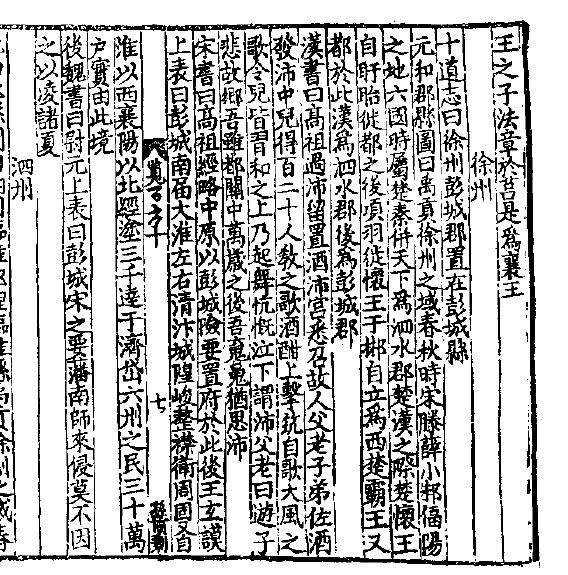 王之子法章於莒是爲襄王
徐州
十道志曰徐州彭城郡置在彭城縣
元和郡縣圖曰禹貢徐州之域春秋時宋滕薛小邾偪陽
之地六國時屬楚秦併天下爲泗水郡楚漢之際楚懷王
自盱眙徙都之後項羽徙懷王于郴自立爲西楚霸王又
都於此漢爲泗水郡後爲彭城郡
漢書曰高祖過沛留置酒沛宮悉召故人父老子弟佐酒
發沛中兒得百二十人教之歌酒酣上擊筑自歌大風之
歌令兒皆習和之上乃起舞忼慨泣下謂沛父老曰遊子
悲故鄉吾雖都關中萬歲之後吾魂魄猶思沛
宋書曰高祖經略中原以彭城險要置府於此後王玄謨
上表曰彭城南届大淮左右清汴城隍峻整襟衛周固又自
覽百六十 七
淮以西襄陽以北經塗三千達于濟岱六州之民三十萬
户實由此境
後魏書曰尉元上表曰彭城宋之要藩南師來侵莫不因
之以凌諸夏
泗州